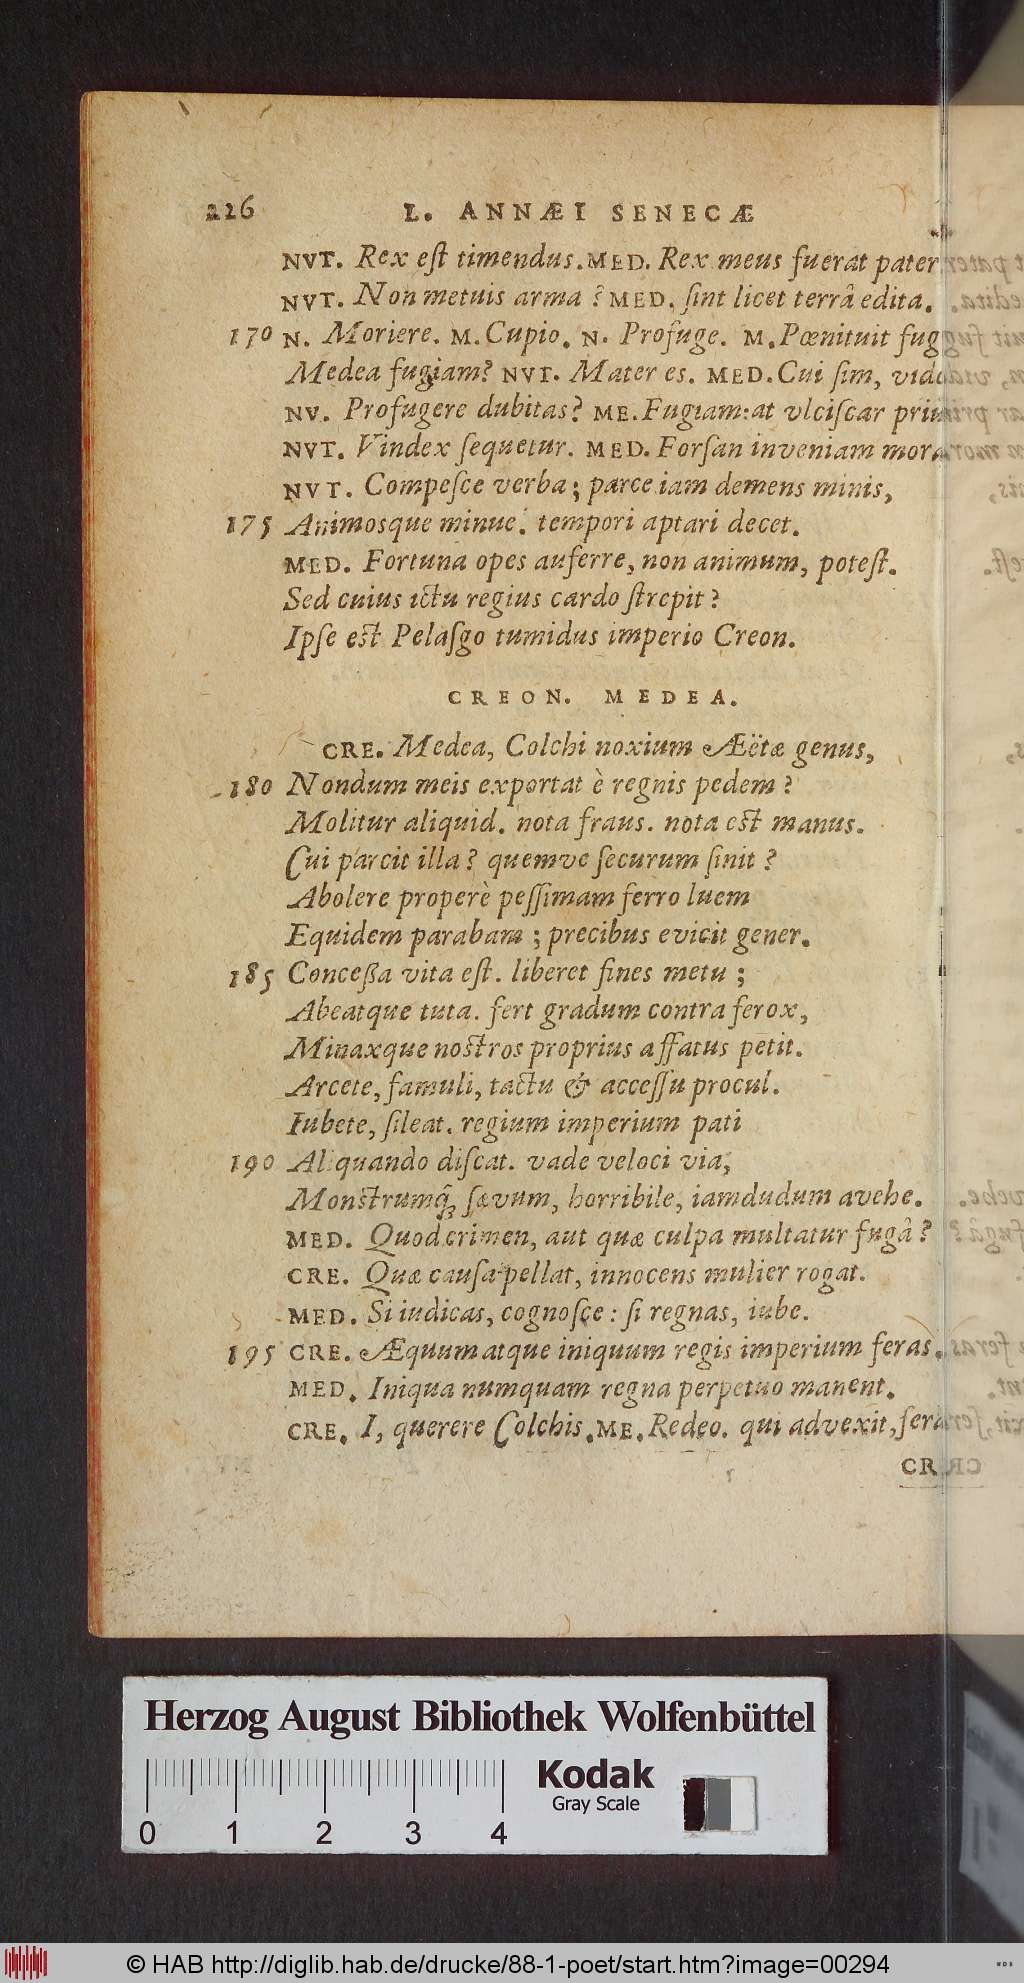 226 L. ANNÆI SENECÆ
NVT. Rex eſt timendus. MED. Rex meus fuerat pater
NVT. Non metuis arma? MED. ſint licet terrâ edita.
170 N. Moriere. M. Cupio. N. Profuge. M. Pœnituit fug
Medea fugiam? NVT. Mater es. MED. Cui ſim, vid
NV. Profugere dubitas? ME. Fugiam: at vlciſcar priu
NVT. Vindex ſequetur. MED. Forſan inveniam mora
NVT. Compeſce verba; parce iam demens minis,
175 Animosque minue. tempori aptari decet.
MED. Fortuna opes auferre, non animum, poteſt.
Sed cuius ictu regius cardo ſtrepit?
Ipſe eſt Pelaſgo tumidus imperio Creon.
CREON. MEDEA.
CRE. Medea, Colchi noxium Æëtæ genus,
180 Nondum meis exportat è regnis pedem?
Molitur aliquid. nota fraus. nota eſt manus.
Cui parcit illa? quemve ſecurum ſinit?
Abolere properè peſſimam ferro luem
Equidem parabam; precibus evicit gener.
185 Conceßa vita eſt. liberet fines metu;
Abeatque tuta. fert gradum contra ferox,
Minaxque noſtros proprius affatus petit.
Arcete, famuli, tactu & acceſſu procul.
Iubete, ſileat. regium imperium pati
190 Aliquando diſcat. vade veloci via,
Monſtrumq́ꝫ ſævum, horribile, iamdudum avehe.
MED. Quod crimen, aut quæ culpa multatur fugâ?
CRE. Quæ cauſa pellat, innocens mulier rogat.
MED. Si iudicas, cognoſce: ſi regnas, iube.
195 CRE. Æquum atque iniquum regis imperium feras.
MED. Iniqua numquam regna perpetuo manent.
CRE. I, querere Colchis. ME. Redeo. qui advexit, ferat
CRE
Herzog August Bibliothek Wolfenbüttel
Kodak
Gray Scale
0 1 2 3 4
© HAB http://diglib.hab.de/drucke/88-1-poet/start.htm?image=00294